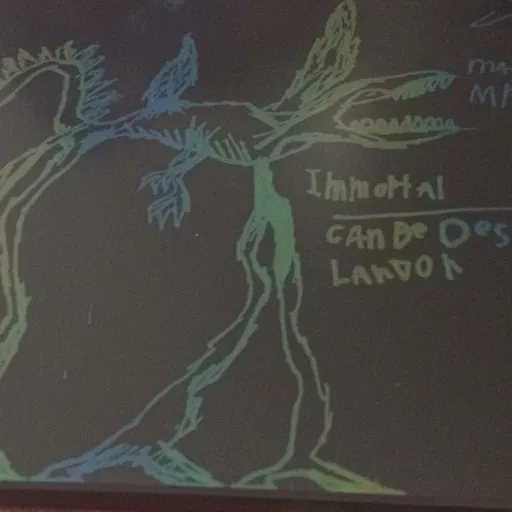 Immortal
CAN BE Des
LANDON